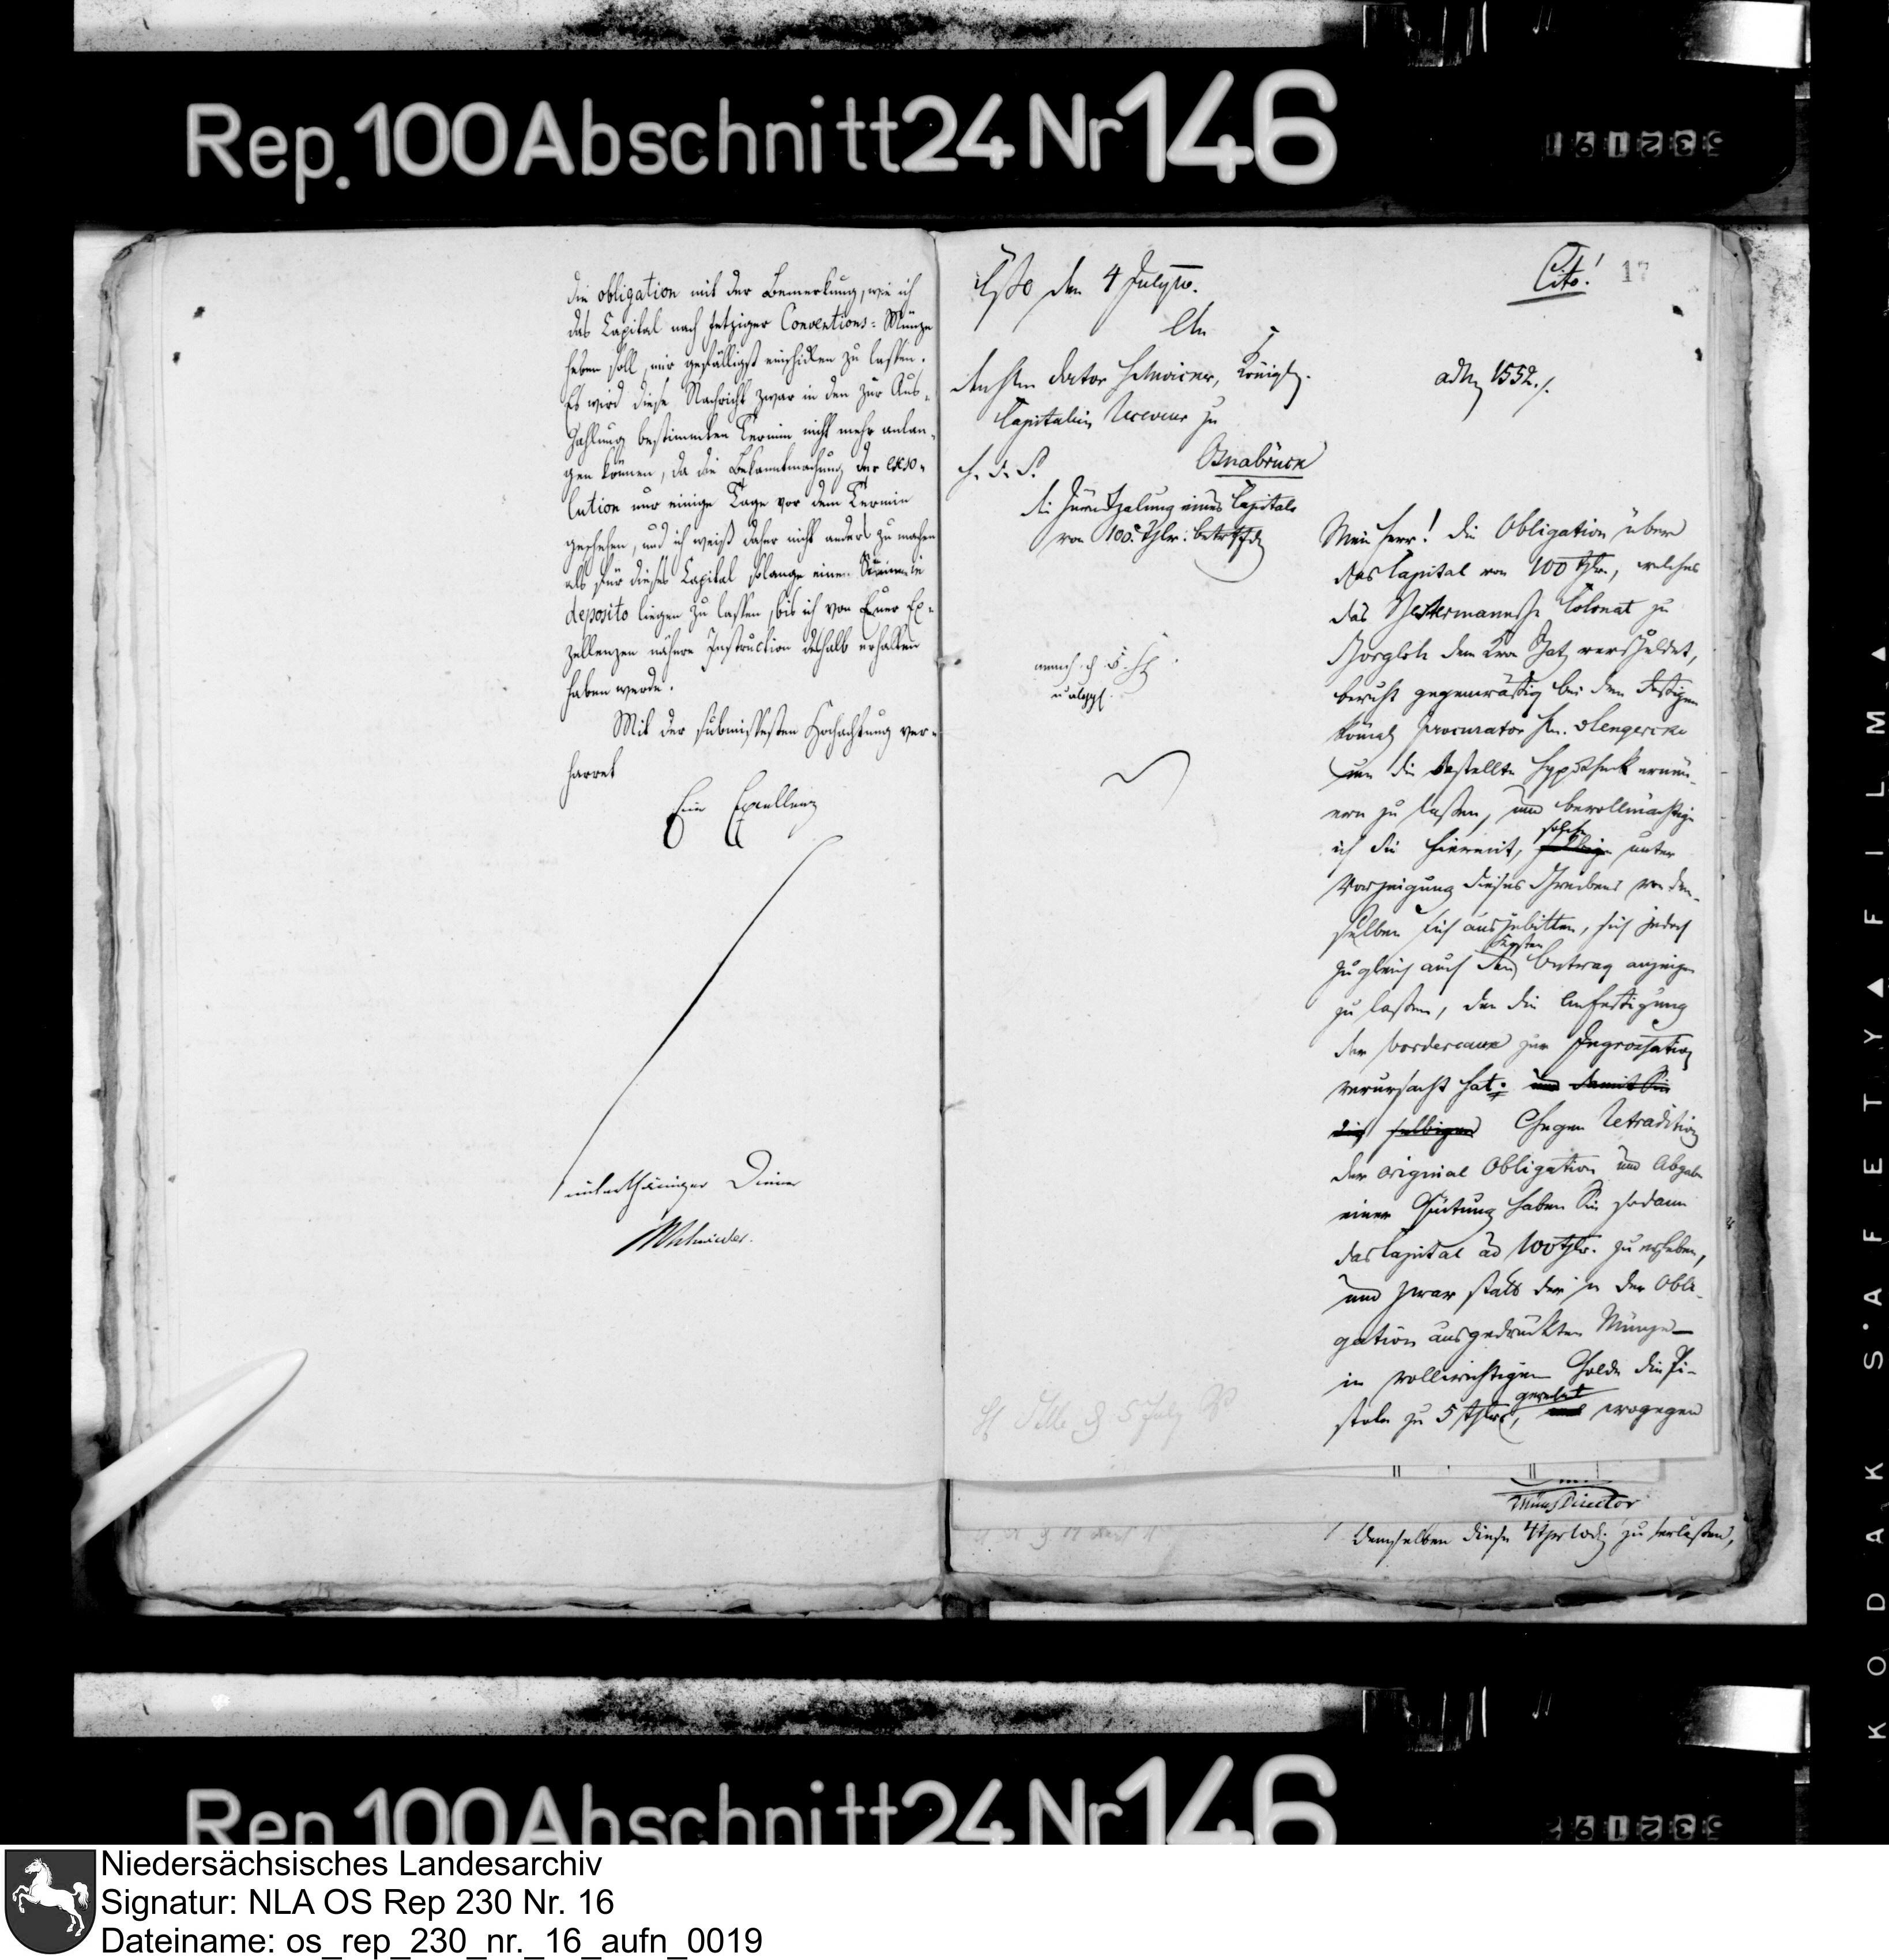 Rep. 100 Abschnitt 24 Nr 146
die obligation mit der Bemerkung, wie ich
das Capital nach jetziger Conventions-Münze
heben soll, mir gefälligst einschicken zu lassen.
Es wird diese Nachricht zwar in den zur Aus-
zahlung bestimmten Termin nicht mehr anlan-
gen können, da die Bekanntmachung der reso-
lution nur einige Tage vor dem Termin
geschehen, und ich weiß daher nicht anders zu machen
als für dieses Capital solange einen in
deposito liegen zu lassen, bis ich von Euer Ex-
zellenzen nähere Instruction deshalb erhalten
haben werde.
Mit der submissesten Hochachtung ver-
harret
Eur Excellenz
unterthäniger Diener
17
Cito!
den 4 July
An
den Herrn doctor Schwicker, Königl.
Capitalien Receveur zu
Osnabrück
die Zurückzalung eines Capitals
von 100 Thlr. betreffd
ad N 1552./.
Mein Herr! Die Obligation über
das Capital von 100 Thlr., welches
das Colonat zu
Borgloh dem verschuldet,
beruht gegenwärtig bei dem
Procurator Hrn.
um die bestellte Hypotheck erneu-
ern zu lassen, und bevollmächtige
ich Sie hiermit, solche unter
Vorzeigung dieses Schreibens von dem-
selben sich auszubitten, sich jedoch
zugleich auch den Kosten Betrag anzeigen
zu lassen, den die Anfertigung
der bordereaux zur Ingrossation
verursacht hat. und damit Sie
selbigen Gegen Retradition
der original Obligation und Abgabe
einer Quitung haben Sie sodann
das Capital ad 100 Thlr. zu erheben,
und zwar statt der in der Obli-
gation ausgedruckten Münze
in vollwichtigem Golde die Pi-
stole zu 5 Thlr, gerechnet wogegen
5 July
Münz Director
demselben diese zu erlassen,
KODAK SAFETY FILM
Rep. 100 Abschnitt 24 Nr 146
Niedersächsisches Landesarchiv
Signatur: NLA OS Rep 230 Nr. 16
Dateiname: os_rep_230_nr._16_aufn_0019